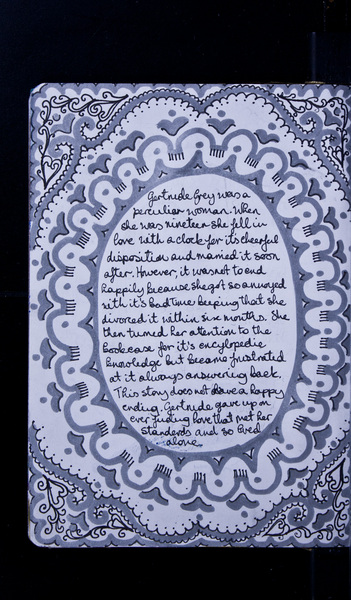 Gertrude Grey was a
peculiar woman. When
she was nineteen she fell in
love with a clock for its cheerful
disposition and married it soon
after. However, it was not to end
happily because she got so annoyed
with it's bad time keeping that she
divorced it within six months. She
then turned her attention to the
bookcase for it's encylopedic
knowledge but became frustrated
at it always answering back.
This story does not have a happy
ending. Gertrude gave up on
ever finding love that met her
standards and so lived
alone.